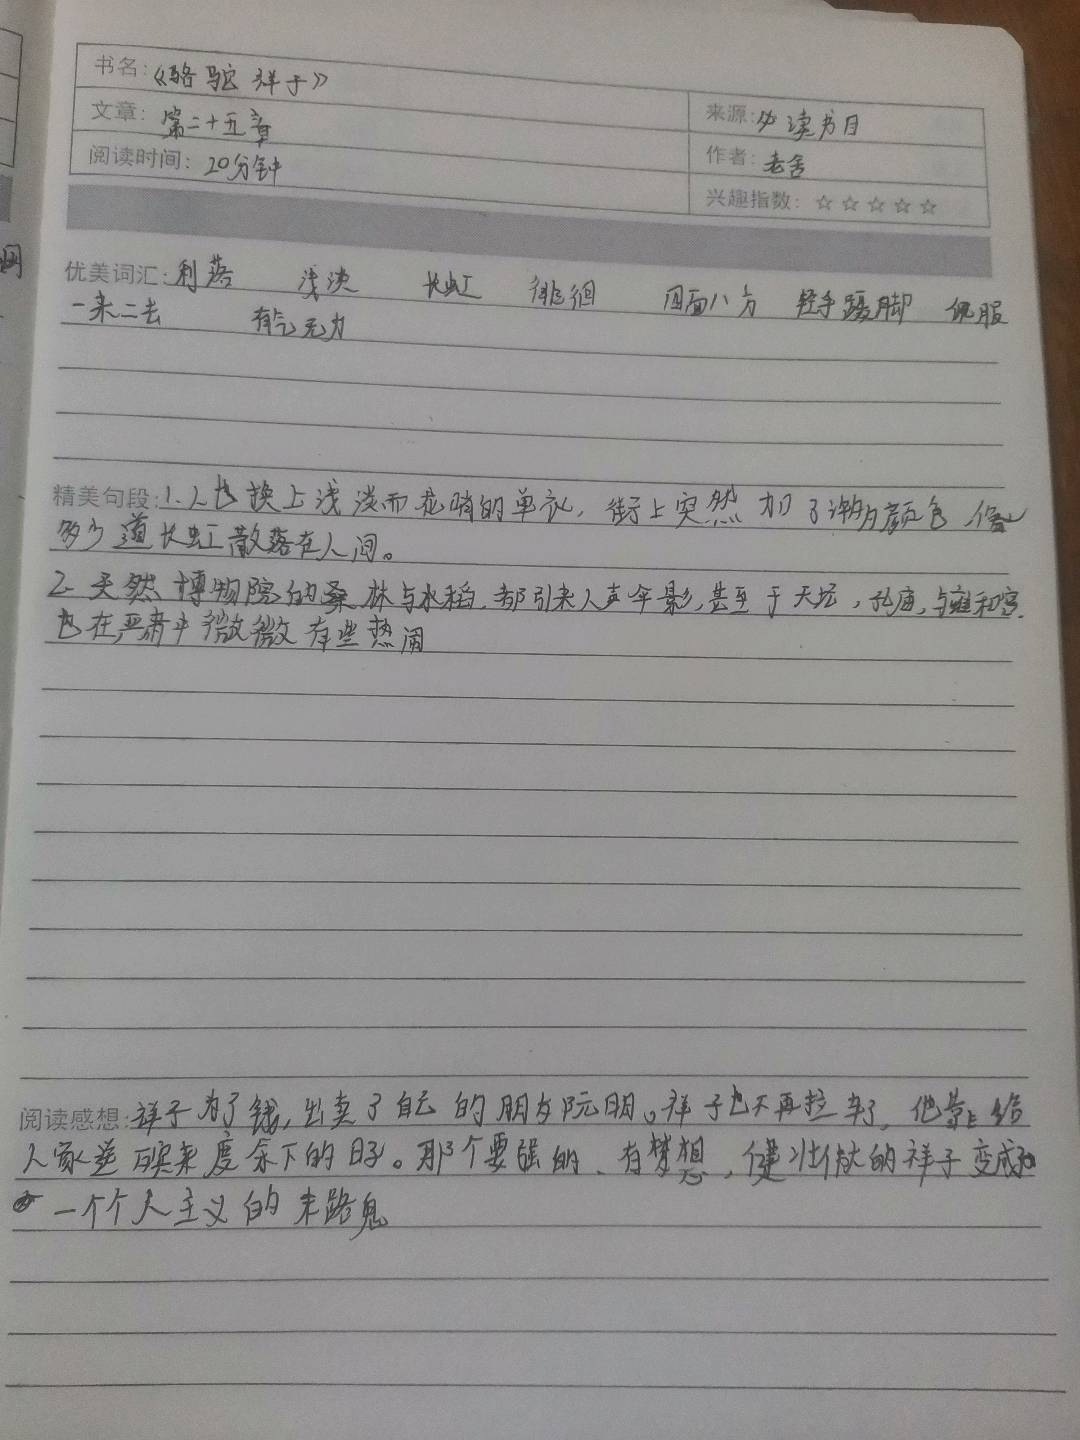 书名:《骆驼祥子》
文章: 第二十五章
来源: 必读书目
阅读时间: 20分钟
作者: 老舍
兴趣指数: ☆☆☆☆☆
优美词汇: 利落 浅淡 长虹 徘徊 四面八方 轻手蹑脚 佩服
一来二去 有气无力
精美句段: 1.人也换上浅淡而花哨的单衣,街上突然加了许多颜色 像
多少道长虹散落在人间。
2.天然博物院的桑林与水稻,都引来人声伞影,甚至于天坛,孔庙,与雍和宫.
也在严肃中微微有些热闹
阅读感想: 祥子为了钱,出卖了自己的朋友阮明。祥子也不再拉车了,他靠上给
人家送 来度余下的日子。那个要强的、有梦想,健壮 的祥子变成
一个个人主义的末路鬼